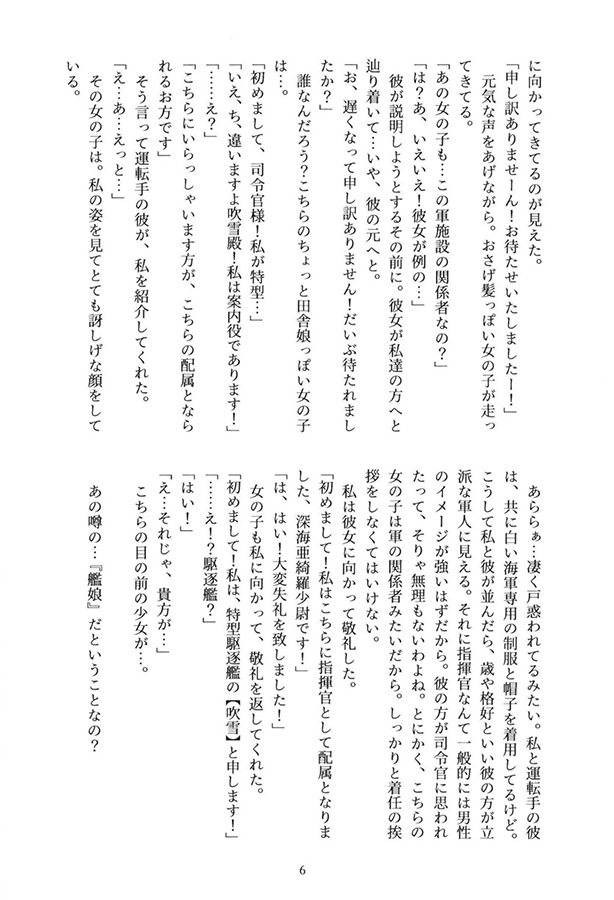 に向かってきてるのが見えた。
「申し訳ありませーん！お待たせいたしましたー！」
　元気な声をあげながら。おさげ髪っぽい女の子が走っ
てきてる。
「あの女の子も…この軍施設の関係者なの？」
「は？あ、いえいえ！彼女が例の…」
　彼が説明しようとするその前に。彼女が私達の方へと
辿り着いて…いや、彼の元へと。
「お、遅くなって申し訳ありません！だいぶ待たれまし
たか？」
　誰なんだろう？こちらのちょっと田舎娘っぽい女の子
は…。
「初めまして、司令官様！私が特型…」
「いえ、ち、違いますよ吹雪殿！私は案内役であります！」
「……え？」
「こちらにいらっしゃいます方が、こちらの配属となら
れるお方です」
　そう言って運転手の彼が、私を紹介してくれた。
「え…あ…えっと…」
　その女の子は。私の姿を見てとても訝しげな顔をして
いる。
　あららぁ…凄く戸惑われてるみたい。私と運転手の彼
は、共に白い海軍専用の制服と帽子を着用してるけど。
こうして私と彼が並んだら、歳や格好といい彼の方が立
派な軍人に見える。それに指揮官なんて一般的には男性
のイメージが強いはずだから。彼の方が司令官に思われ
たって、そりゃ無理もないわよね。とにかく、こちらの
女の子は軍の関係者みたいだから。しっかりと着任の挨
拶をしなくてはいけない。
　私は彼女に向かって敬礼した。
「初めまして！私はこちらに指揮官として配属となりま
した、深海亜綺羅少尉です！」
「は、はい！大変失礼を致しました！」
　女の子も私に向かって、敬礼を返してくれた。
「初めまして！私は、特型駆逐艦の【吹雪】と申します！」
「……え！？駆逐艦？」
「はい！」
「え…それじゃ、貴方が…」
　こちらの目の前の少女が…。
　あの噂の…『艦娘』だということなの？
6